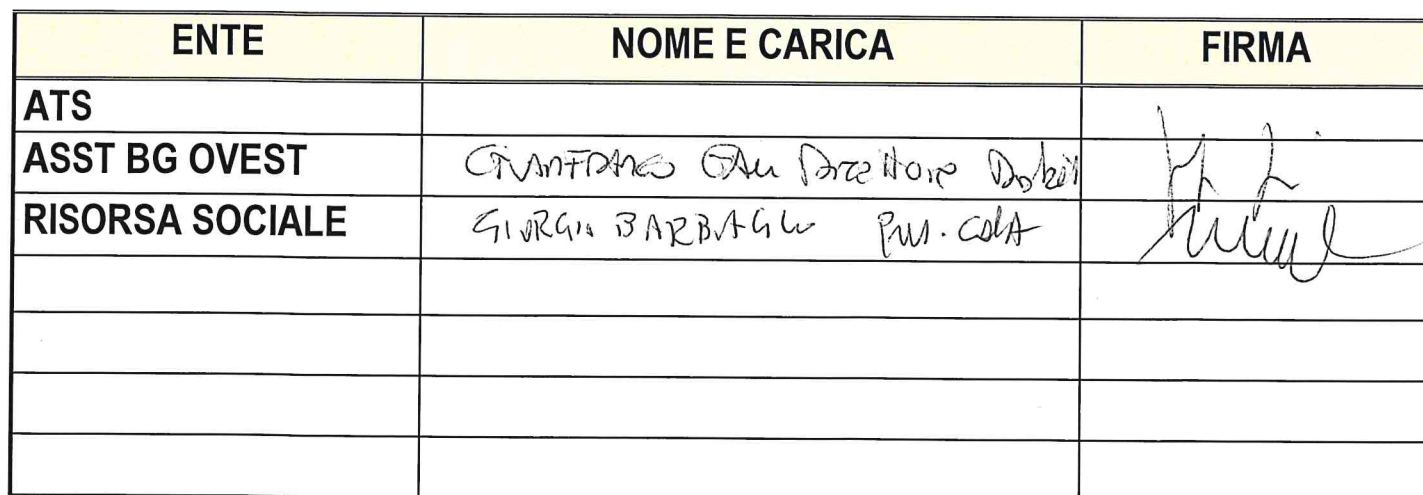 ENTE NOME E CARICA FIRMA
ATS
ASST BG OVEST GIANFRANCO Direttore
RISORSA SOCIALE GIORGIO BARBAGLIO PRES. CDA